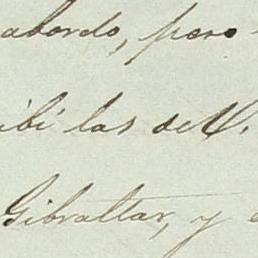 abordo, pero
ibi las de V.
Gibraltar, y